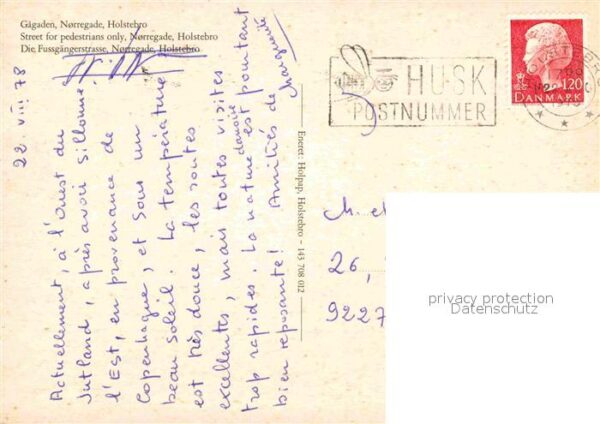 Gågaden, Nørregade, Holstebro
Street for pedestrians only, Nørregade, Holstebro
Die Fussgängerstrasse, Nørregade, Holstebro
22. VIII 78
Actuellement, à l'Ouest du
Jutland, après avoir sillonné
l'Est, en provenance de
Copenhague, et sous un
beau soleil. La température
est très douce, les routes
excellentes, mais toutes visites
trop rapides. La nature danoise est pourtant
bien reposante! Amitiés de Marguerite
Eneret: Holpap, Holstebro - 143 708 012
HUSK
POSTNUMMER
120
DANMARK
26,
9227
privacy protection
Datenschutz